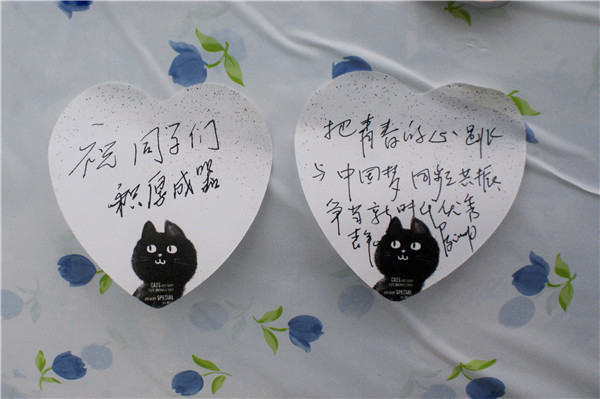 祝 同学们
积厚成器
把青春的心跳
与中国梦同频共振
争当新时代优秀
青
CATS
SPECIAL
CATS
SPECIAL